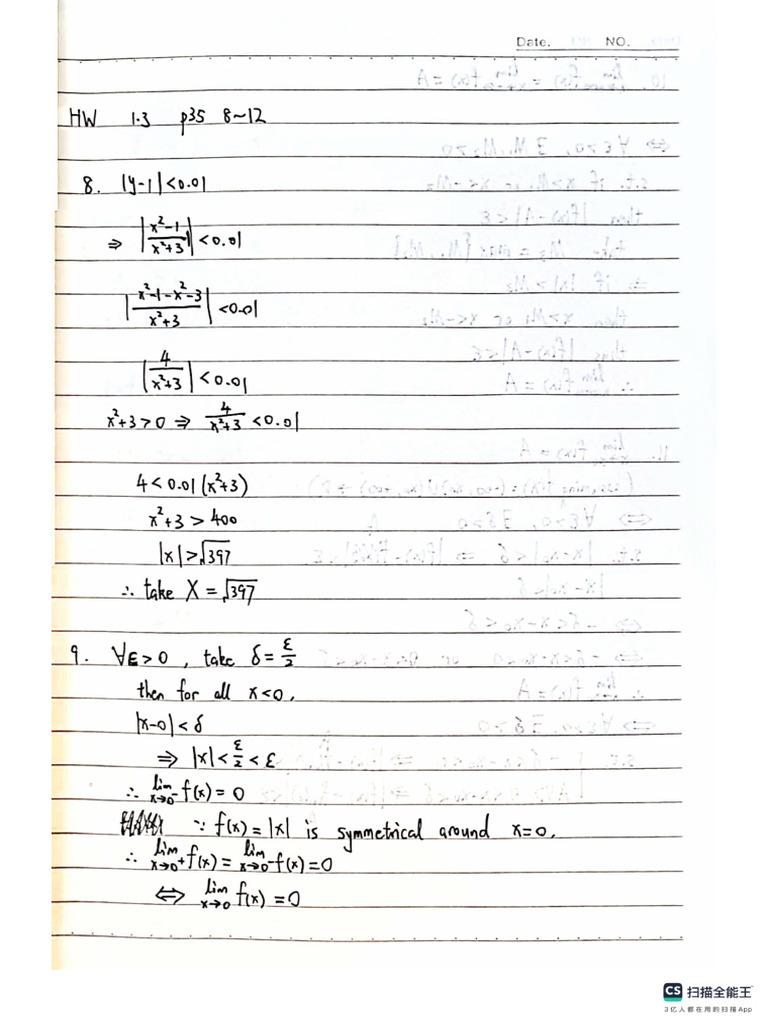 Date. NO.
HW 1.3 p35 8~12
8. |y-1|<0.01
⇒ |x²-1/x²+3|<0.01
|x²-1-x²-3/x²+3|<0.01
|4/x²+3|<0.01
x²+3>0 ⇒ 4/x²+3<0.01
4<0.01(x²+3)
x²+3>400
|x|>√397
∴ take X=√397
9. ∀ε>0, take δ=ε/2
then for all x<0,
|x-0|<δ
⇒ |x|<ε/2<ε
∴ lim x→0⁻ f(x)=0
∵ f(x)=|x| is symmetrical around x=0,
∴ lim x→0⁺ f(x)=lim x→0⁻ f(x)=0
⇔ lim x→0 f(x)=0
CS 扫描全能王
3亿人都在用的扫描App